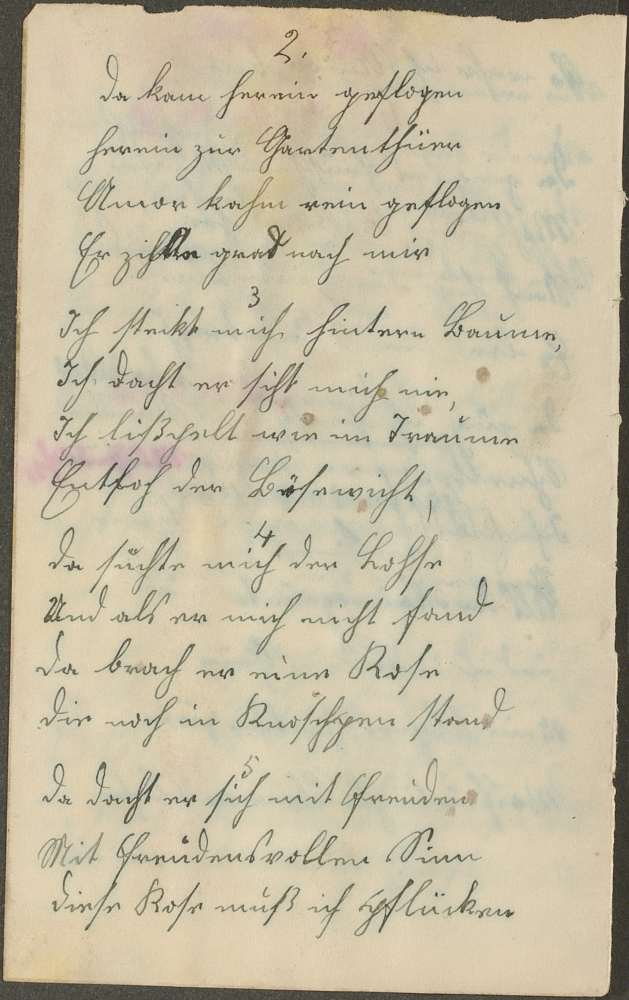 2.
Da kam herein geflogen
herein zur Gartenthüer
Amor kahm rein geflogen
Er zihlte grad nach mir
3
Ich steckt mich hintern Baume,
Ich dacht er siht mich nie,
Ich lißpelt wie im Traume
Entfloh der Bösewicht,
4
Da suchte mich der Lohse
Und als er mich nicht fand
Da brach er eine Rose
Die noch in Knoschpen stand
5
Da dacht er sich mit Freuden
Mit freudensvollen Sinn
Diese Rose muß ich pflücken